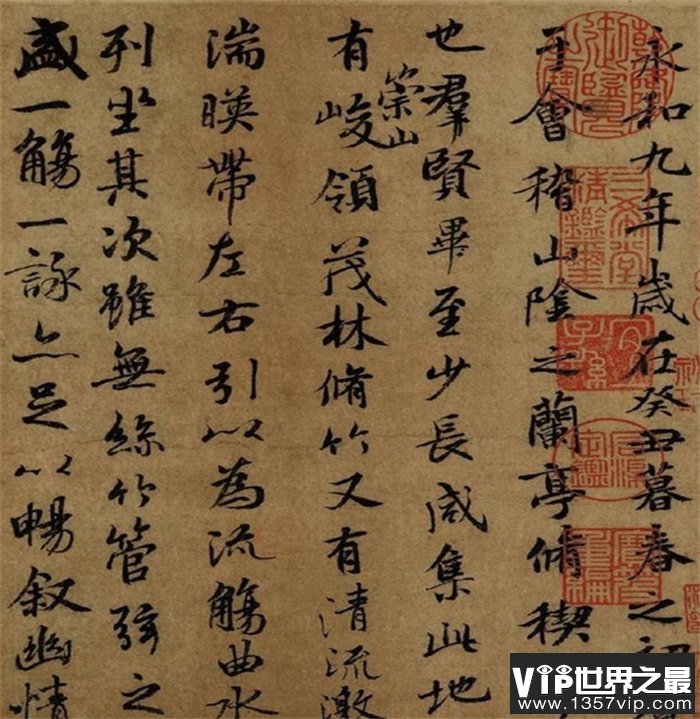 永和九年歲在癸丑暮春之初
于會稽山陰之蘭亭脩稧
也羣賢畢至少長咸集此地
有崇山峻領茂林脩竹又有清流激
湍暎帶左右引以為流觴曲水
列坐其次雖無絲竹管弦之
盛一觴一詠亦足以暢叙幽情
三希堂精鑑璽
宜子孫
VIP世界之最
www.1357vip.com